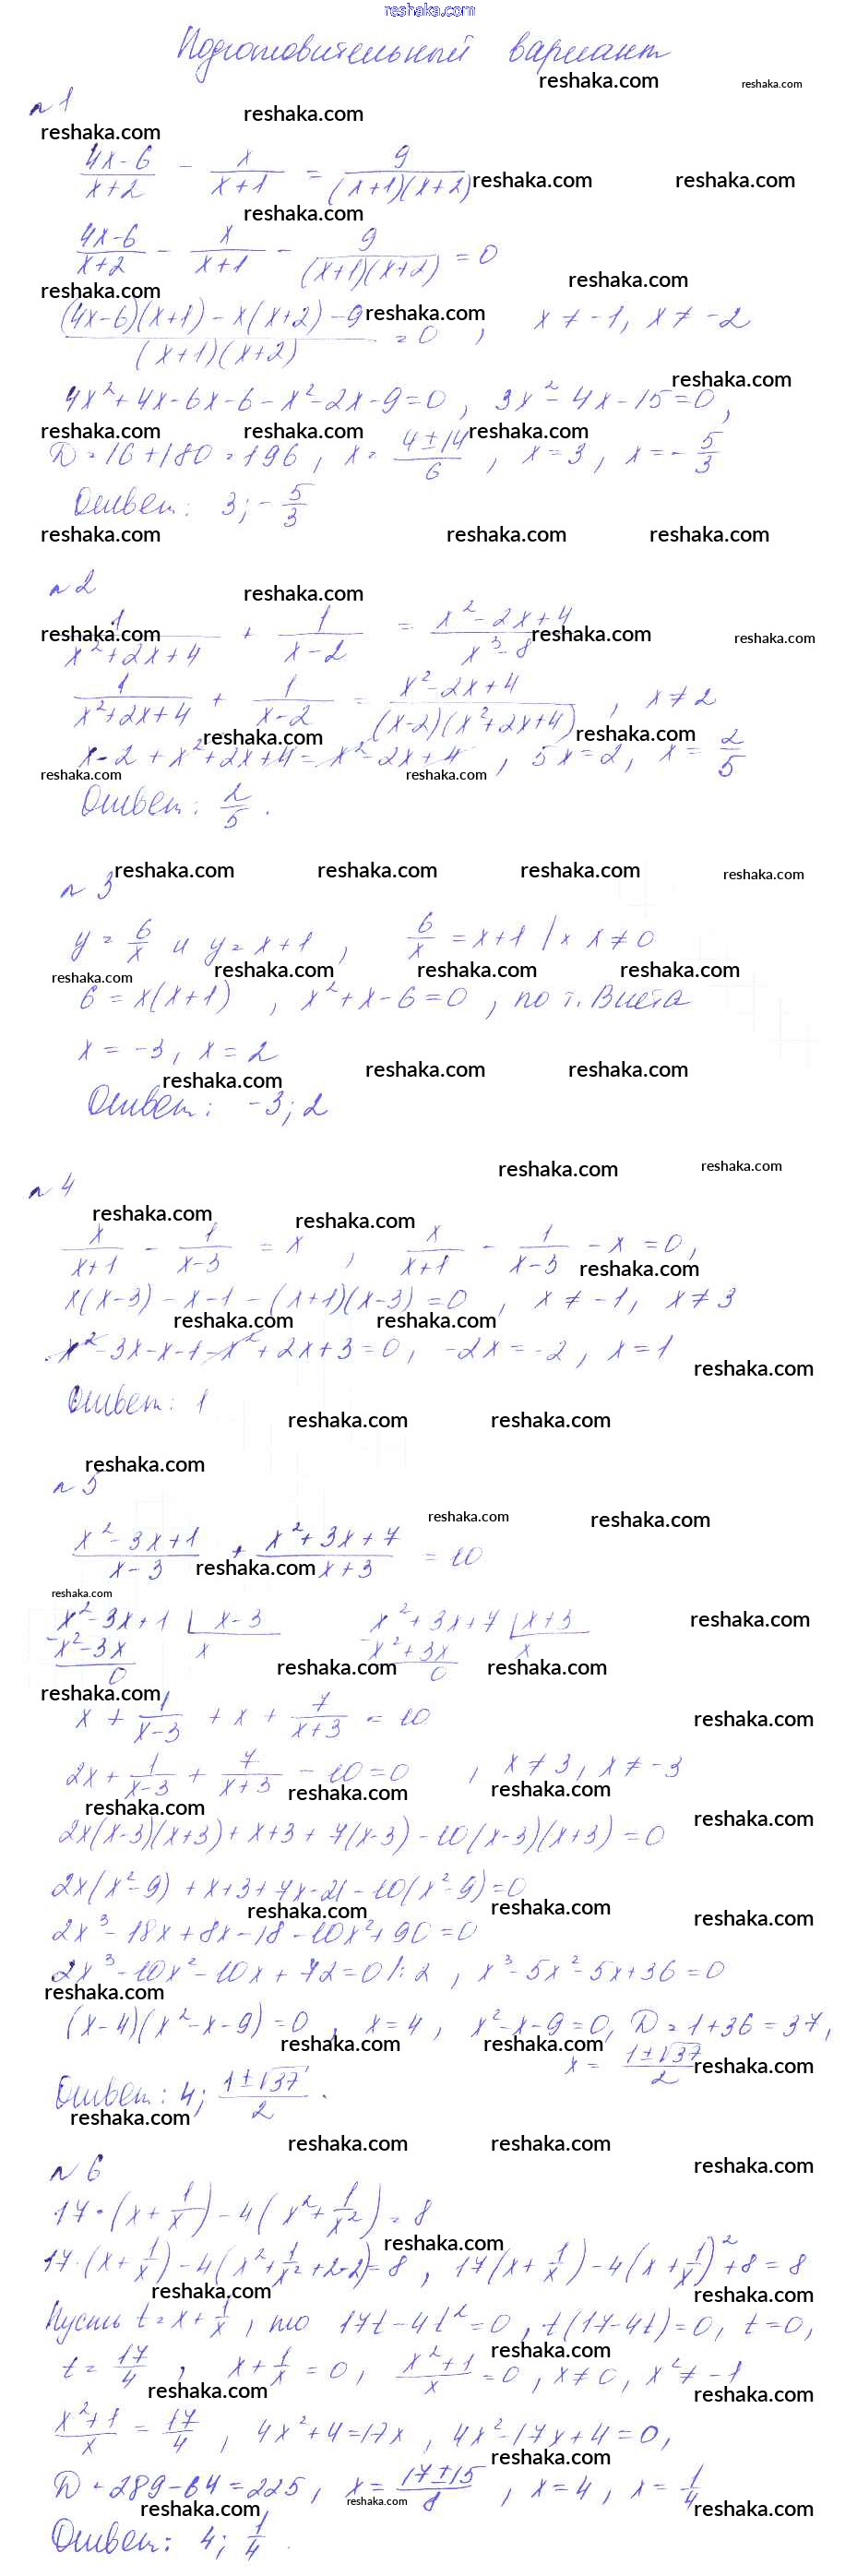 reshaka.com
Подготовительный вариант
№1
(4x-6)/(x+2) - x/(x+1) = 9/((x+1)(x+2))
(4x-6)/(x+2) - x/(x+1) - 9/((x+1)(x+2)) = 0
((4x-6)(x+1) - x(x+2) - 9)/((x+1)(x+2)) = 0, x ≠ -1, x ≠ -2
4x²+4x-6x-6-x²-2x-9=0, 3x²-4x-15=0,
D=16+180=196, x = (4±14)/6, x=3, x=-5/3
Ответ: 3; -5/3
№2
1/(x²+2x+4) + 1/(x-2) = (x²-2x+4)/(x³-8)
1/(x²+2x+4) + 1/(x-2) = (x²-2x+4)/((x-2)(x²+2x+4)), x≠2
x-2+x²+2x+4=x²-2x+4, 5x=2, x=2/5
Ответ: 2/5.
№3
y=6/x и y=x+1, 6/x=x+1 |x x≠0
6=x(x+1), x²+x-6=0, по т. Виета
x=-3, x=2
Ответ: -3; 2
№4
x/(x+1) - 1/(x-3) = x, x/(x+1) - 1/(x-3) - x = 0,
x(x-3)-x-1-(x+1)(x-3)=0, x≠-1, x≠3
x²-3x-x-1-x²+2x+3=0, -2x=-2, x=1
Ответ: 1
№5
(x²-3x+1)/(x-3) + (x²+3x+7)/(x+3) = 10
x²-3x+1 | x-3 x²+3x+7 | x+3
-x²-3x x -x²+3x x
0 0
x + 1/(x-3) + x + 7/(x+3) = 10
2x + 1/(x-3) + 7/(x+3) - 10 = 0, x≠3, x≠-3
2x(x-3)(x+3)+x+3+7(x-3)-10(x-3)(x+3)=0
2x(x²-9)+x+3+7x-21-10(x²-9)=0
2x³-18x+8x-18-10x²+90=0
2x³-10x²-10x+72=0 |:2, x³-5x²-5x+36=0
(x-4)(x²-x-9)=0, x=4, x²-x-9=0, D=1+36=37,
x = (1±√37)/2
Ответ: 4; (1±√37)/2.
№6
17·(x+1/x)-4(x²+1/x²)=8
17·(x+1/x)-4(x²+1/x²+2-2)=8, 17(x+1/x)-4(x+1/x)²+8=8
Пусть t=x+1/x, то 17t-4t²=0, t(17-4t)=0, t=0,
t=17/4, x+1/x=0, (x²+1)/x=0, x≠0, x²≠-1
(x²+1)/x=17/4, 4x²+4=17x, 4x²-17x+4=0,
D=289-64=225, x=(17±15)/8, x=4, x=1/4
Ответ: 4; 1/4.